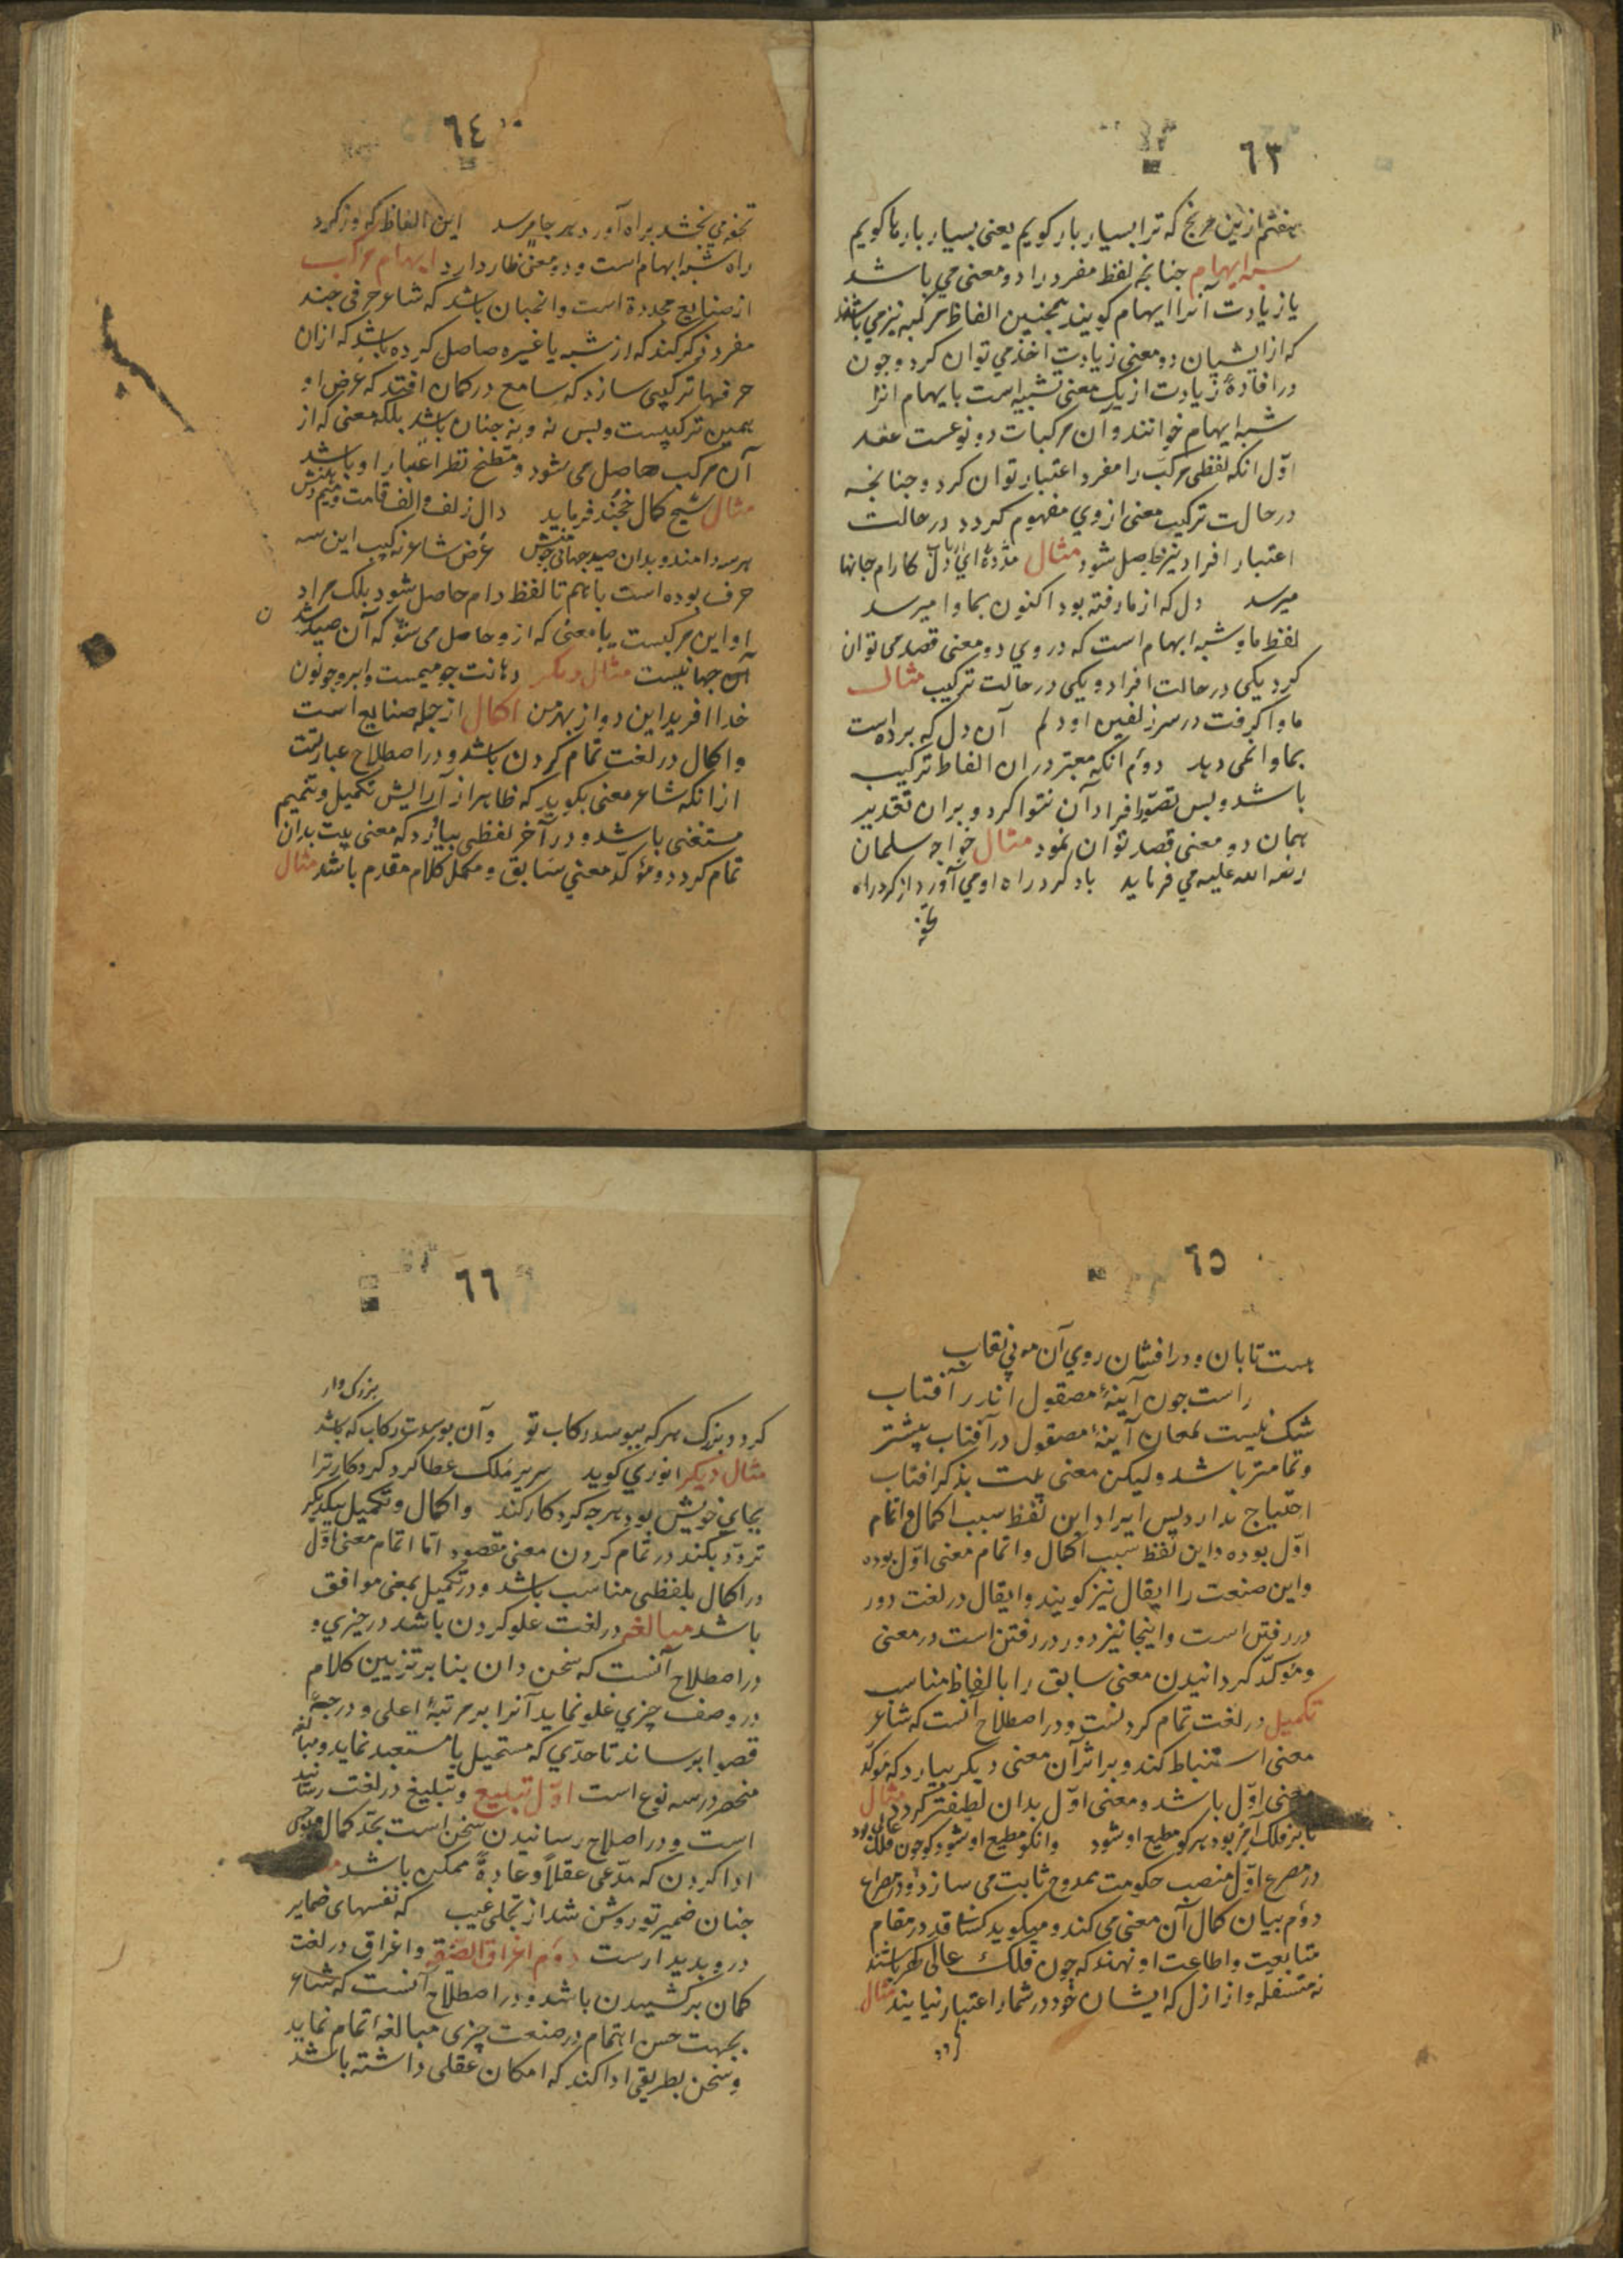 ٦٣
بهفتم ازین مرنج که ترا بسیار بار کویم یعنی بسیار بار ها کویم
شبه ایهام جنانجه لفظ مفرد را دو معنی می باشد
یا زیادت آنرا ایهام کویند همجنین الفاظ مرکبه نیز می باشند
که از ایشیان دو معنی زیادت اخذ می توان کرد و جون
در افادهٔ زیادت از یک معنی تشبیه است بایهام انرا
شبه ایهام خوانند و آن مرکبات دو نوعست عقد
اوّل انکه لفظی مرکب را مفرد اعتبار توان کرد و جنانجه
در حالت ترکیب معنی از وی مفهوم کردد در حالت
اعتبار افراد نیز حاصل شود مثال مژدهٔ ای دل کارام جانها
میرسد دل که از ما رفته بود اکنون بما وا میرسد
لفظ ما و شبه ابهام است که در وی دو معنی قصد می توان
کرد یکی در حالت افراد و یکی در حالت ترکیب مثال
ماوا کرفت در سر زلفین او دلم آن دل که برده است
بما وا نمی دهد دوئم انکه معتبر در ان الفاظ ترکیب
باشد و بس تصوّر افراد آن نتوا کرد و بران تقدیر
بهمان دو معنی قصد توان نمود مثال خواجه سلمان
رحمه الله علیه می فرماید باد کرد راه او می آورد از کرد راه
تحفه
٦٤
تحفه می بخشد براه آورد هر جا میرسد این الفاظ که وز کرد
راه شبه ابهام است و دو معنی ظار دارد ایهام مرکب
از صنایع مجدده است و انجبان باشد که شاعر حرفی جند
مفرد ذکر کند که از شبه یا غیره حاصل کرده باشد که ازان
حرفها ترکیبی سازد که سامع در کمان افتد که غرض او
همین ترکیبست و بس نه و نه جنان باشد بلکه معنی که از
آن مرکب حاصل می شود و متطنح نظر اعتبار او باشد
مثال شیخ کمال خجند فرماید دال زلف و الف قامت و میم دهنش
هر سه دامند و بدان صید جهانی جو منش غرض شاعر نه ترکیب این سه
حرف بوده است با هم تا لفظ دام حاصل شود بلک مراد
او این مرکبست یا معنی که ازو حاصل می شود که آن صید شد
آن جهانیست مثال دیکر دهانت جو میمست و ابرو جو نون
خدا افرید این دو از بهر من اکمال از جمله صنایع است
و اکمال در لغت تمام کردن باشد و در اصطلاح عبارتست
از انکه شاعر معنی بکوید که ظاهر از آرایش تکمیل و تتمیم
مستغنی باشد و در آخر لفظی بیاٰرد که معنی بیت بدان
تمام کردد و مؤکد معنی سابق و مکمل کلام مقدم باشد مثال
٦٥
هست تابان و درافشان روی آن مه بی نقاب
راست جون آینهٔ مصقول اندر آفتاب
شک نیست لمعان آینهٔ مصقول در آفتاب بیشتر
و تمامتر باشد و لیکن معنی بیت بذکر افتاب
احتیاج ندارد پس ایراد این لفظ سبب اکمال و اتمام
اوّل بوده و این لفظ سبب اکمال و اتمام معنی اوّل بوده
و این صنعت را ایقال نیز کویند و ایقال در لغت دور
در رفتن است و اینجا نیز دور در رفتن است در معنی
و مؤکد کردانیدن معنی سابق را بالفاظ مناسب
تکمیل در لغت تمام کردنست و در اصطلاح آنست که شاعر
معنی استنباط کند و بر اثر آن معنی دیکر بیارد که مؤکد
معنی اوّل باشد و معنی اوّل بدان لطیفتر کردد مثال
بود هر کو مطیع او شود وانکو مطیع او شود کو جون فلک عالی بود
در مصرع اوّل منصب حکومت ممدوح ثابت می سازد و در مصراع
دوئم بیان کمال آن معنی می کند و میکوید کسانی قدم در مقام
متابعت و اطاعت او نهند که جون فلک عالی کهر باشند
نه متسفله و ازازل که ایشان خود در شمار اعتبار نیایند مثال
کردد
٦٦
کردد بزرک هر که ببوسد رکاب تو وان بوسدت رکاب که باشد بزرک وار
مثال دیکر انوری کوید سریر ملک عطا کرد کردکار ترا
بجای خویش بود هر جه کردکار کند و اکمال و تکمیل بیکدیکر
تردّد بکند در تمام کردن معنی مقصود امّا اتمام معنی اوّل
در اکمال بلفظی مناسب باشد و در تکمیل بمعنی موافق
باشد مبالغه در لغت علو کردن باشد در چیزی و
در اصطلاح آنست که سخن دان بنا بر تزیین کلام
در وصف چیزی غلو نماید آنرا بمرتبهٔ اعلی و درجهٔ
قصوا برساند تا حدّی که مستحیل یا مستعبد نماید و مبالغه
منحصر در سه نوع است اوّل تبلیغ و تبلیغ در لغت رسانید
است و در اصلاح رسانیدن سخن است بحدّ کمال
ادا کردن که مدّعی عقلاً و عادةً ممکن باشد
جنان ضمیر تو روشن شد از تجلی غیب که نفسهای ضمایر
در و بدیدارست دوئم اغراق الصّفه و اغراق در لغت
کمان برکشیدن باشد و در اصطلاح آنست که شاعر
بجهت حسن اهتمام در صنعت چیزی مبالغه اتمام نماید
و سخن بطریقی ادا کند که امکان عقلی داشته باشد